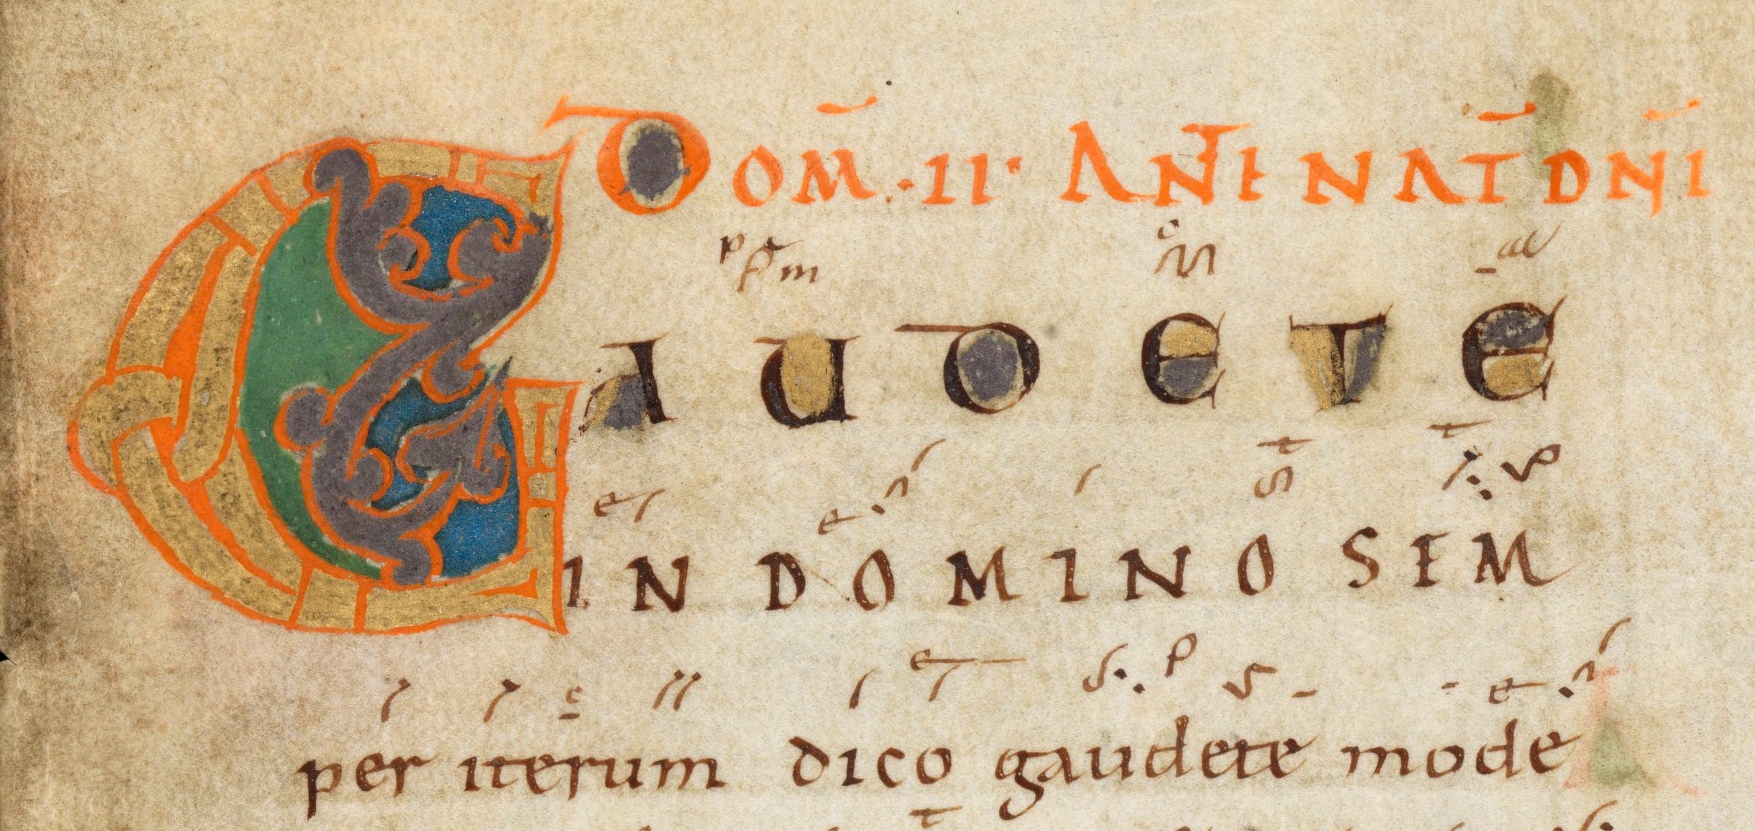 DOM̄ .II. ANTE NAT̄ DN̄I
GAUDETE
IN DOMINO SEM
per iterum dico gaudete mode